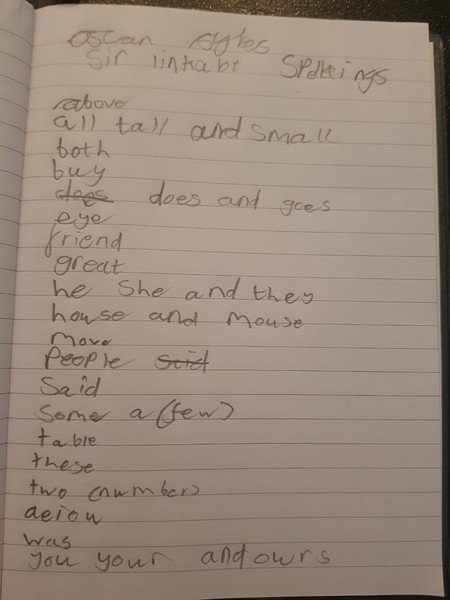 oscar sykes
Sir linkalot Spellings
above
all tall and small
both
buy
does does and goes
eye
friend
great
he She and they
house and mouse
move
People said
Said
Some a (few)
table
these
two (number)
aeiou
was
you your and ours